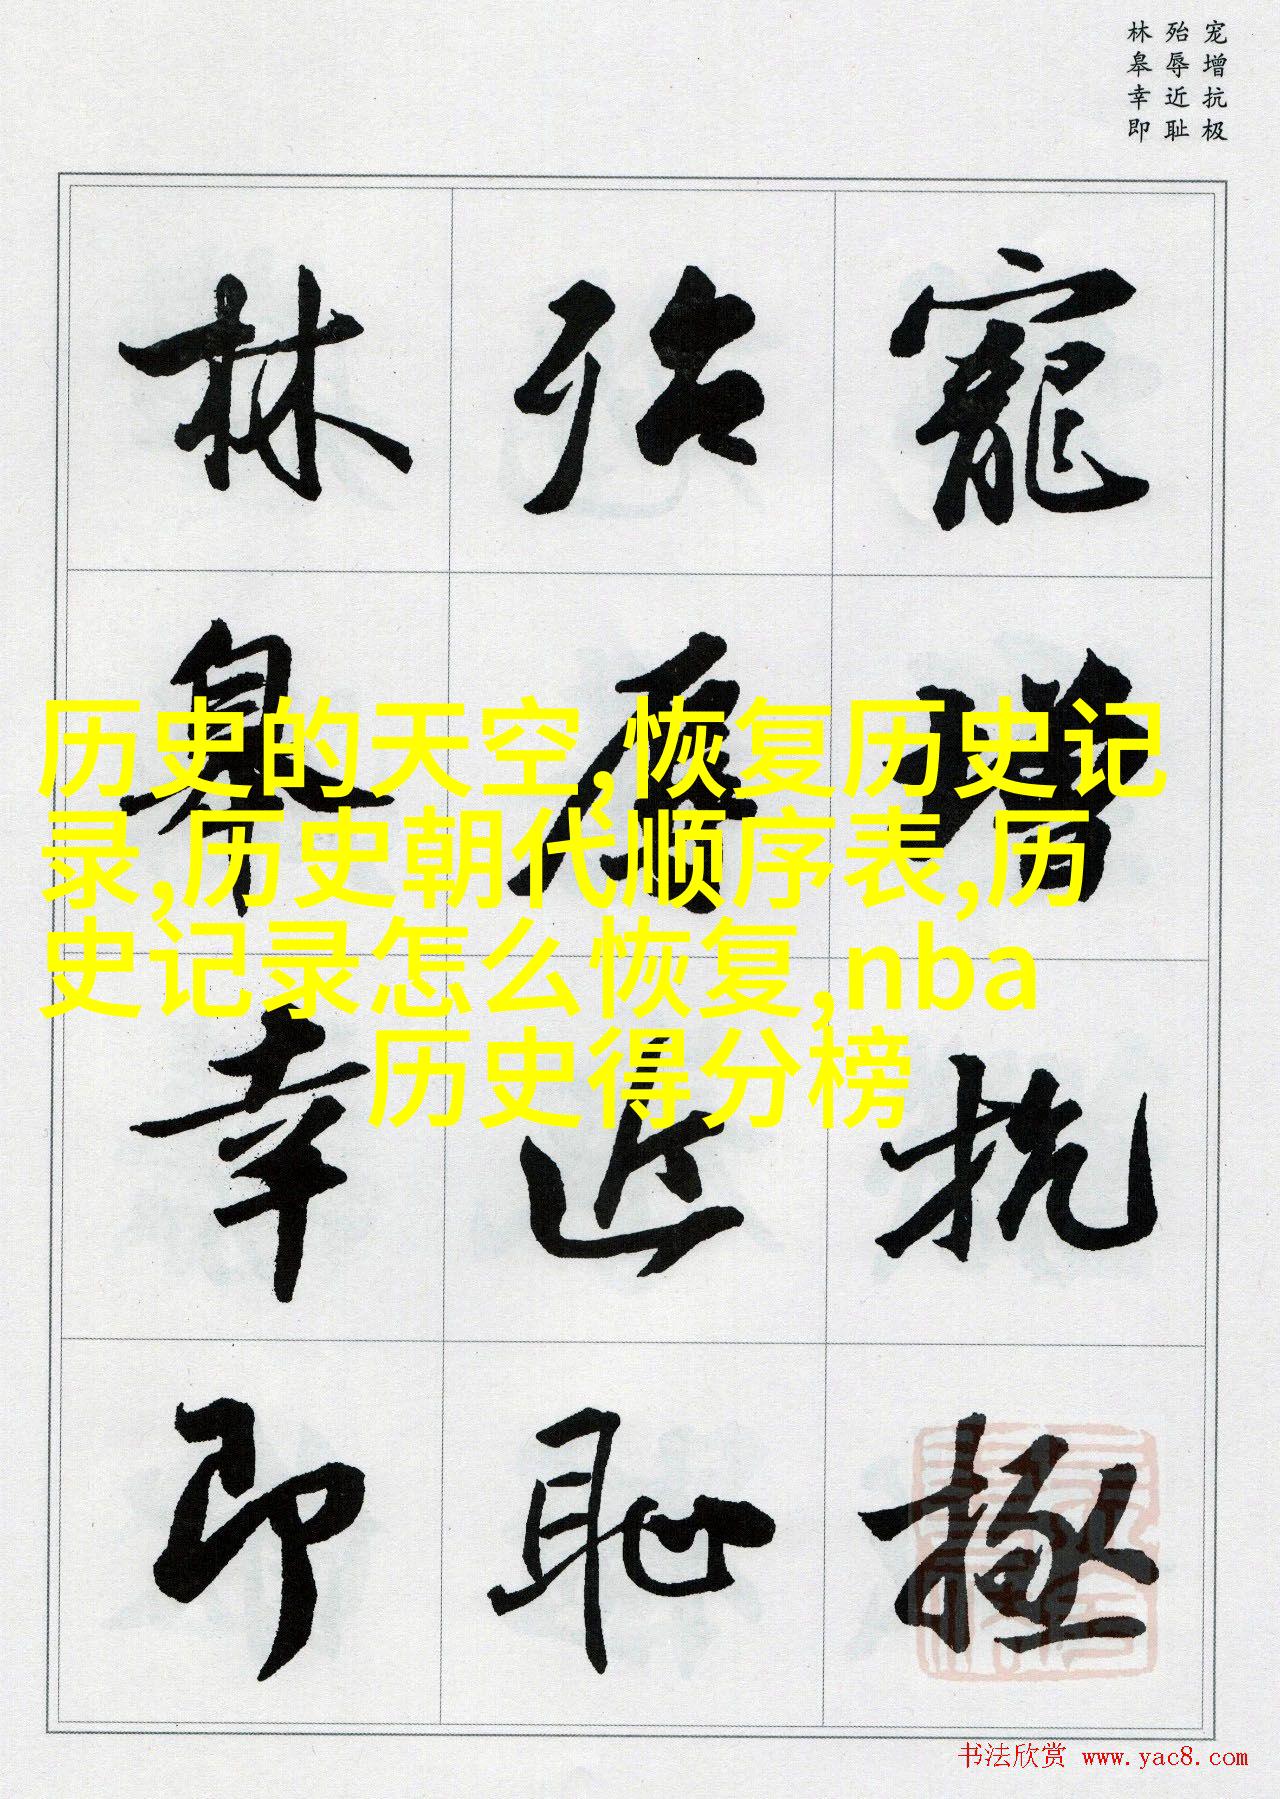 宠增抗极
殆辱近耻
林皋幸即
寵增抗極
殆辱近恥
林皋幸即
历史的天空,恢复历史记
录,历史朝代顺序表,历
史记录怎么恢复,nba
历史得分榜
书法欣赏 www.yac8.com